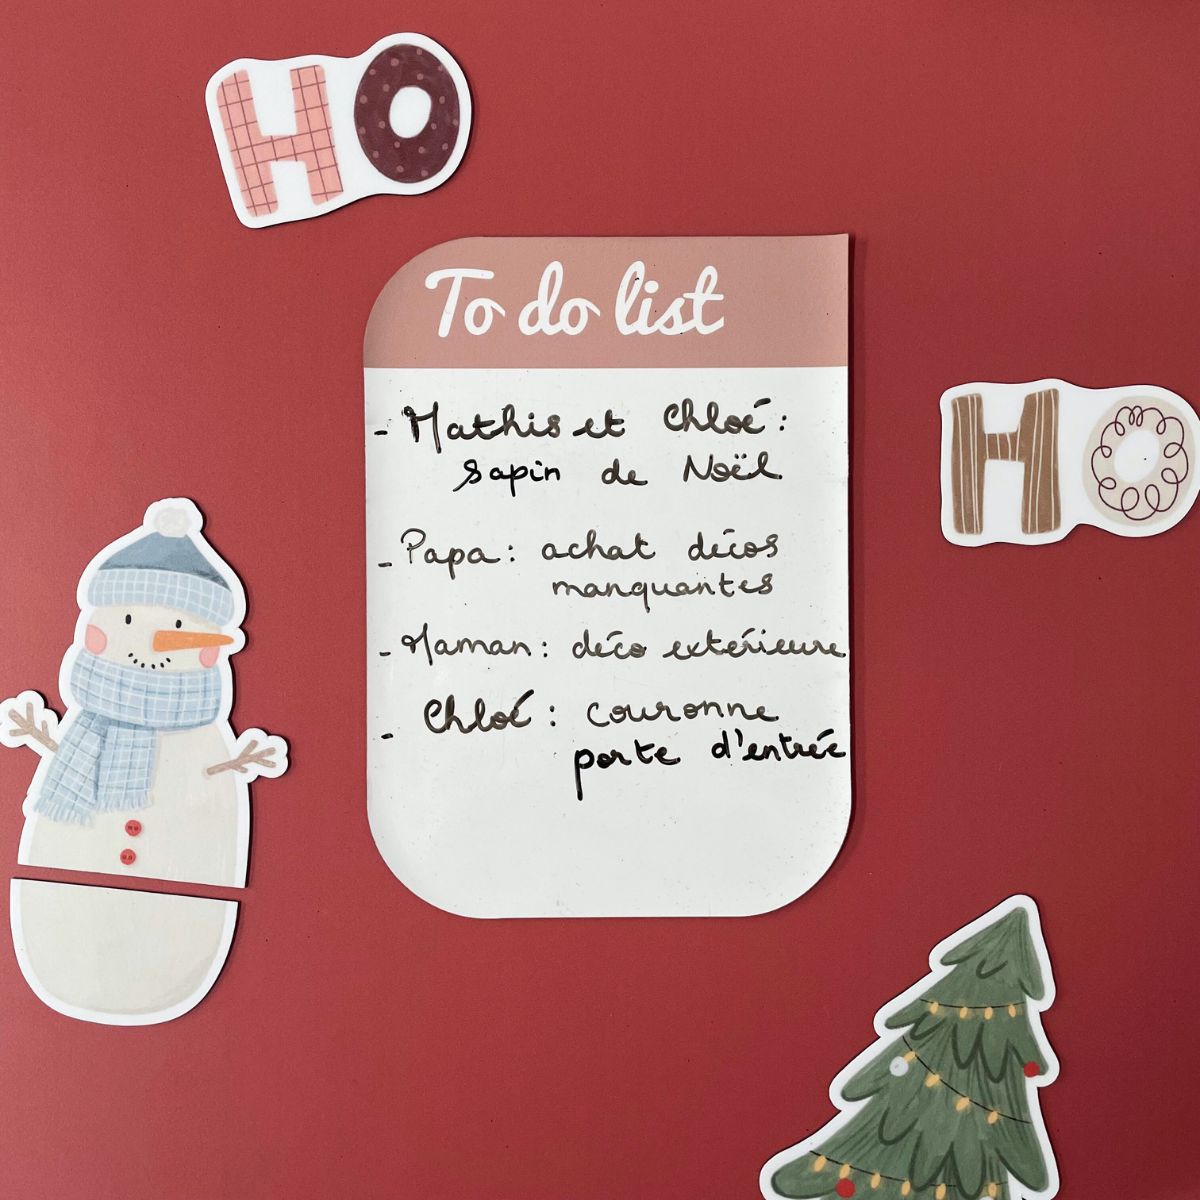 HO
To do list
- Mathis et Chloé :
sapin de Noël
HO
- Papa : achat décos
manquantes
- Maman : déco extérieure
- Chloé : couronne
porte d'entrée